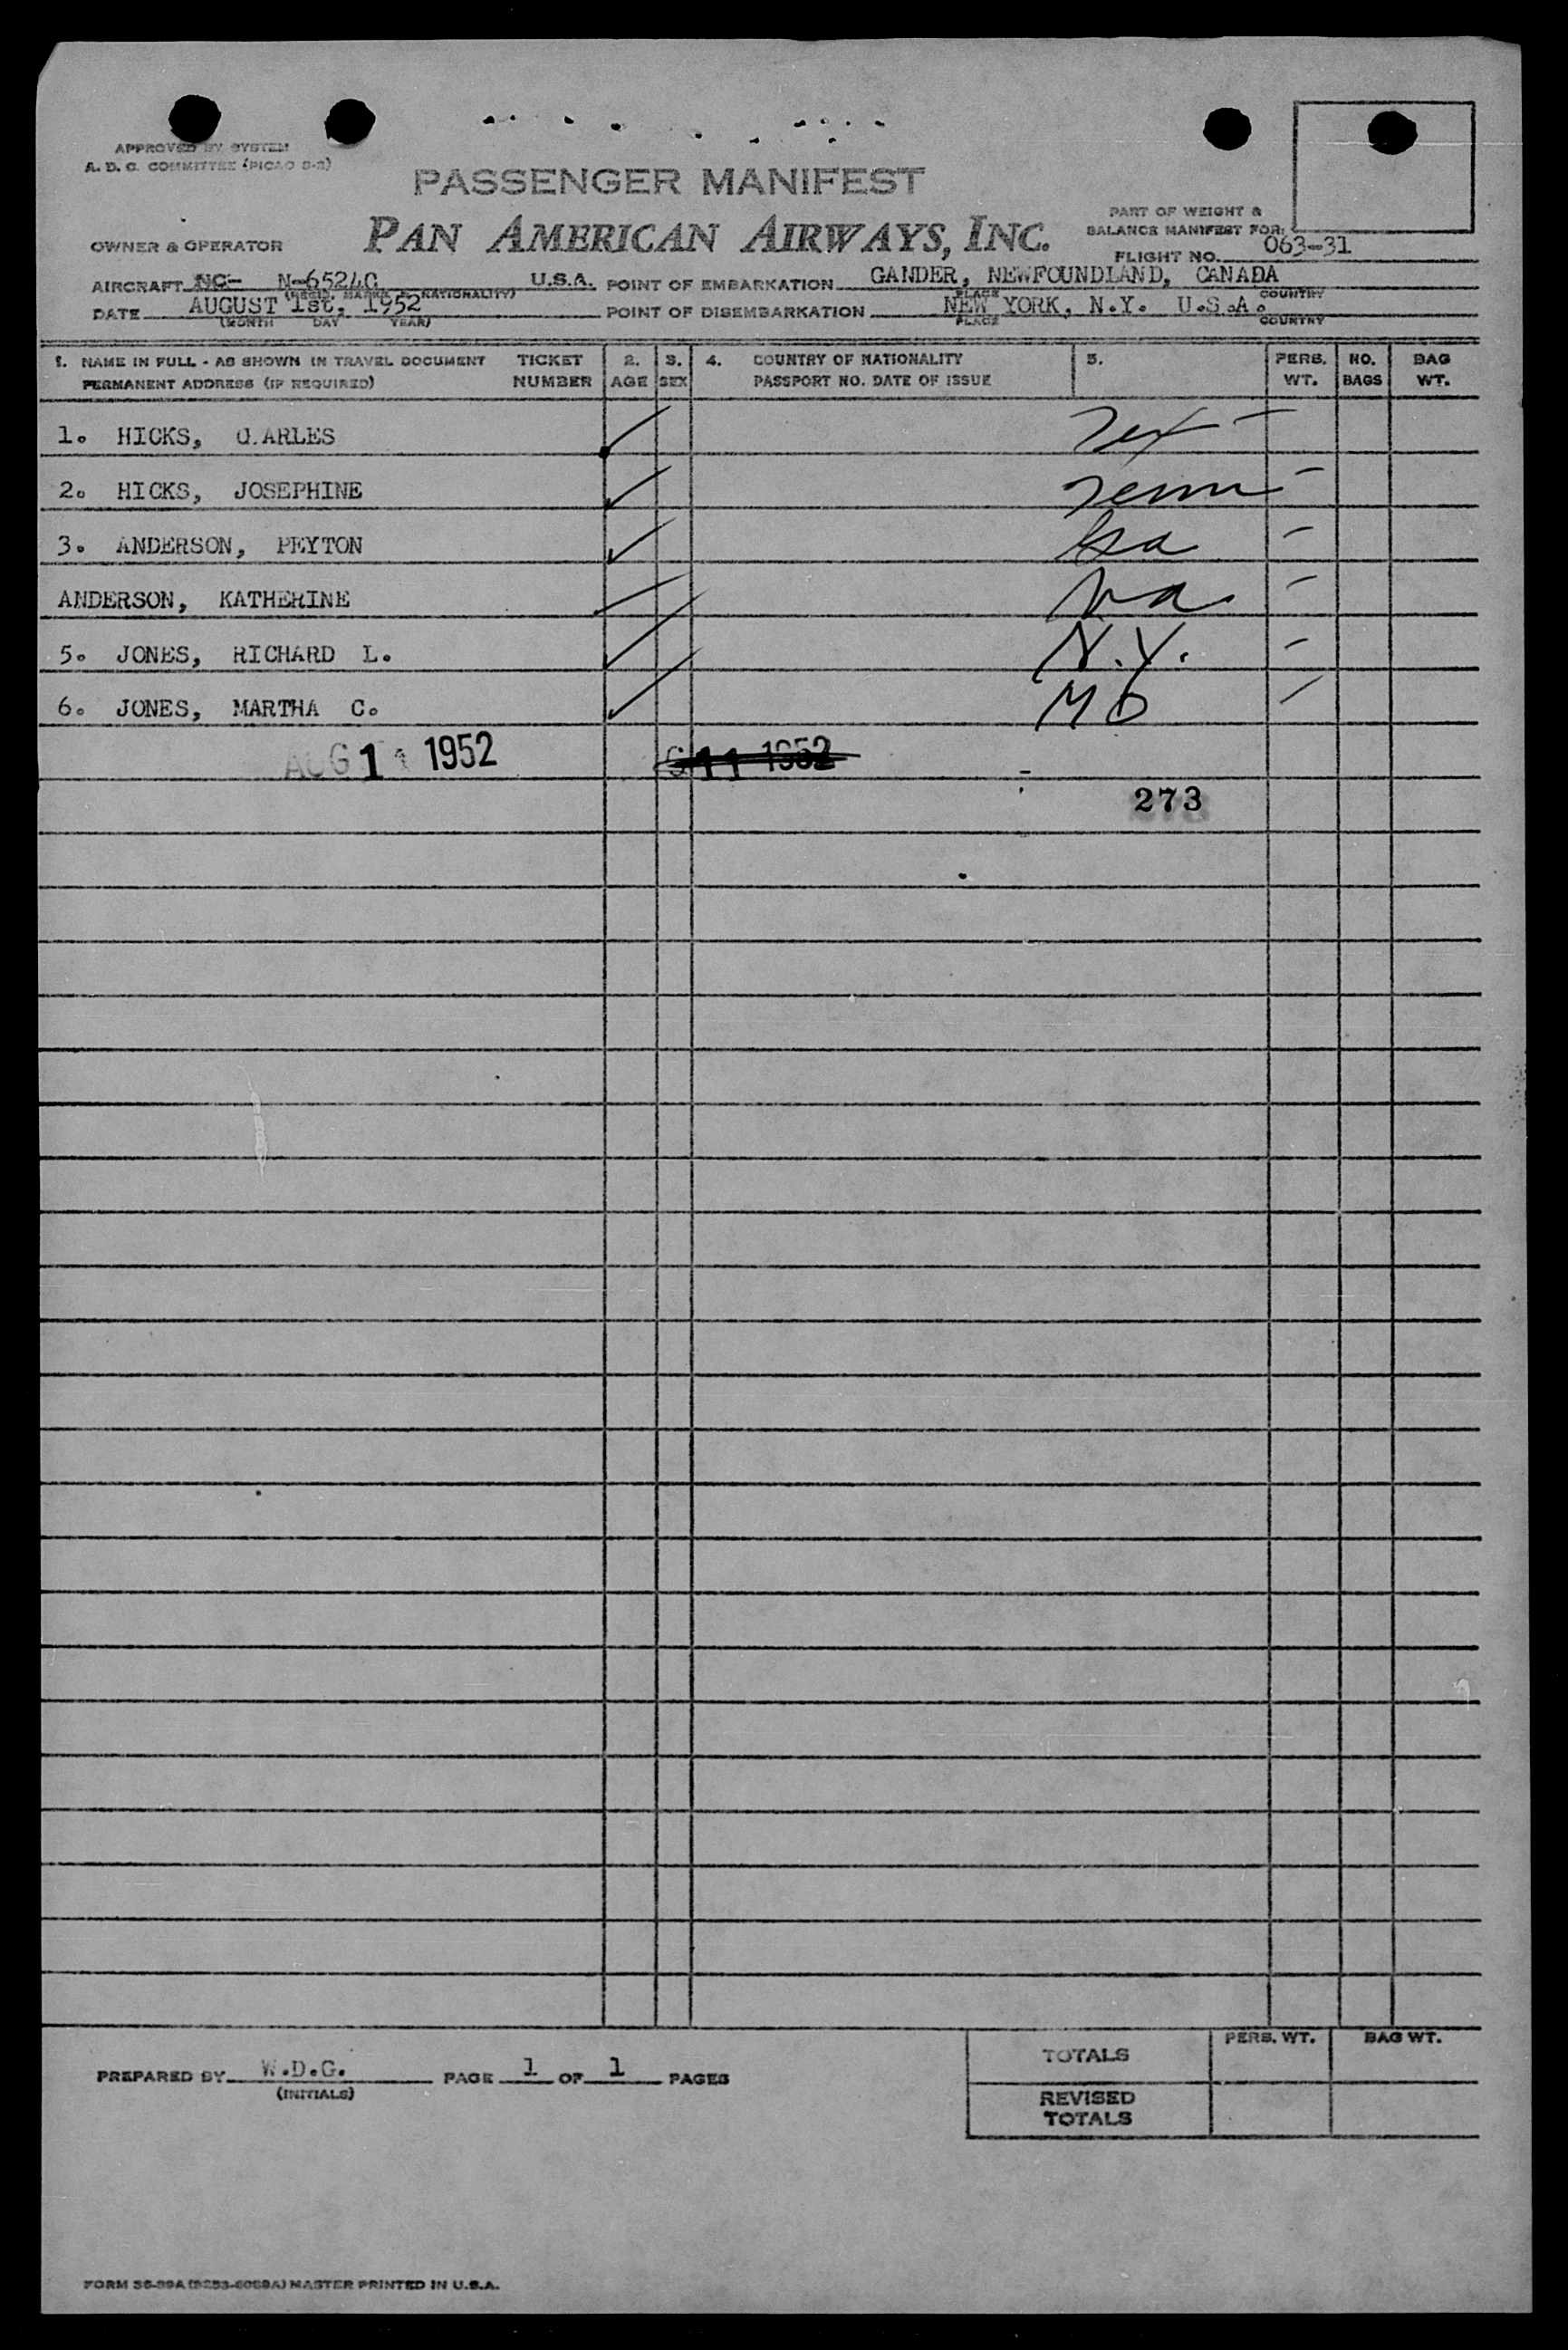 APPROVED BY SYSTEM
A. D. C. COMMITTEE (PICAO S-2)
PASSENGER MANIFEST
PAN AMERICAN AIRWAYS, INC.
OWNER & OPERATOR
PART OF WEIGHT &
BALANCE MANIFEST FOR:
FLIGHT NO. 063-31
AIRCRAFT NC- N-6524C U.S.A. POINT OF EMBARKATION GANDER, NEWFOUNDLAND, CANADA
(REGIS. MARKS & NATIONALITY) PLACE COUNTRY
DATE AUGUST 1st, 1952 POINT OF DISEMBARKATION NEW YORK, N.Y. U.S.A.
(MONTH DAY YEAR) PLACE COUNTRY
1. NAME IN FULL - AS SHOWN IN TRAVEL DOCUMENT TICKET 2. 3. 4. COUNTRY OF NATIONALITY 5. PERS. NO. BAG
PERMANENT ADDRESS (IF REQUIRED) NUMBER AGE SEX PASSPORT NO. DATE OF ISSUE WT. BAGS WT.
1. HICKS, ARLES Tex -
2. HICKS, JOSEPHINE Tenn -
3. ANDERSON, PEYTON Ga -
ANDERSON, KATHERINE Va. -
5. JONES, RICHARD L. N.Y. -
6. JONES, MARTHA C. MO -
AUG 1 1 1952 G 11 1952
273
PREPARED BY W.D.G. PAGE 1 OF 1 PAGES
(INITIALS)
TOTALS PERS. WT. BAG WT.
REVISED
TOTALS
MASTER PRINTED IN U.S.A.